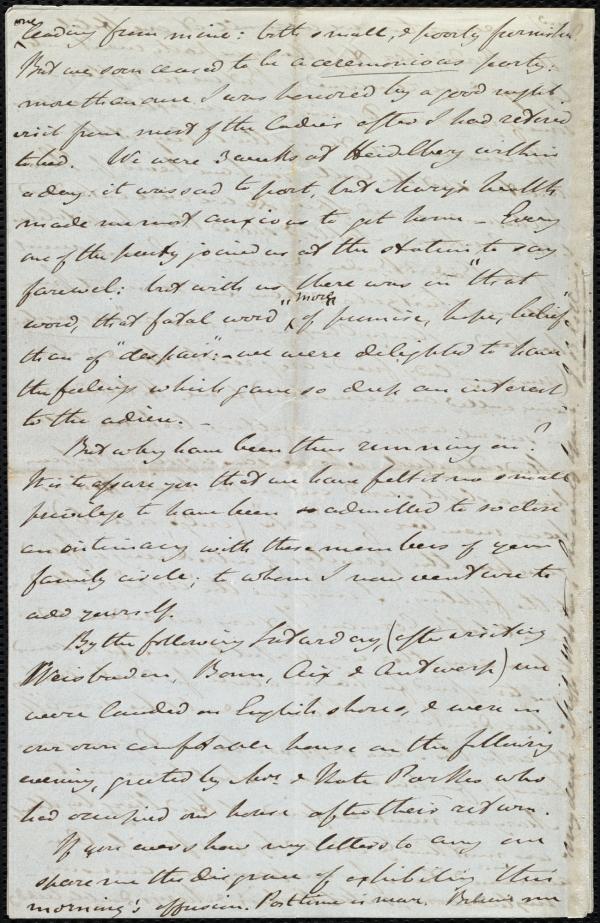 one
leading from mine: both small, & poorly furnished.
But we soon ceased to be a ceremonious party:
more than once I was honored by a good night
visit from most of the ladies after I had retired
to bed. We were 3 weeks at Heidelberg within
a day: it was sad to part, but Mary's health
made me most anxious to get home - Every
one of the party joined us at the station to say
farewel: but with us there was in "that
word, that fatal word" more of promise, hope, belief"
than of "despair": - we were delighted to have
the feelings which gave so deep an interest
to the adieu. -
But why have been thus running on?
It is to assure you that we have felt it no small
privilege to have been so admitted to so close
an intimacy with these members of your
family circle; to whom I now venture to
add yourself.
By the following Saturday, (after visiting
Weisbaden, Bonn, Aix & Antwerp) we
were landed on English shores, & were in
our own comfortable house on the following
evening, greeted by Mrs. & Kate Parkes who
had occupied our house after their return.
If you ever show my letters to any one
spare me the disgrace of exhibiting this
morning's effusion. Post time is near. Believe me